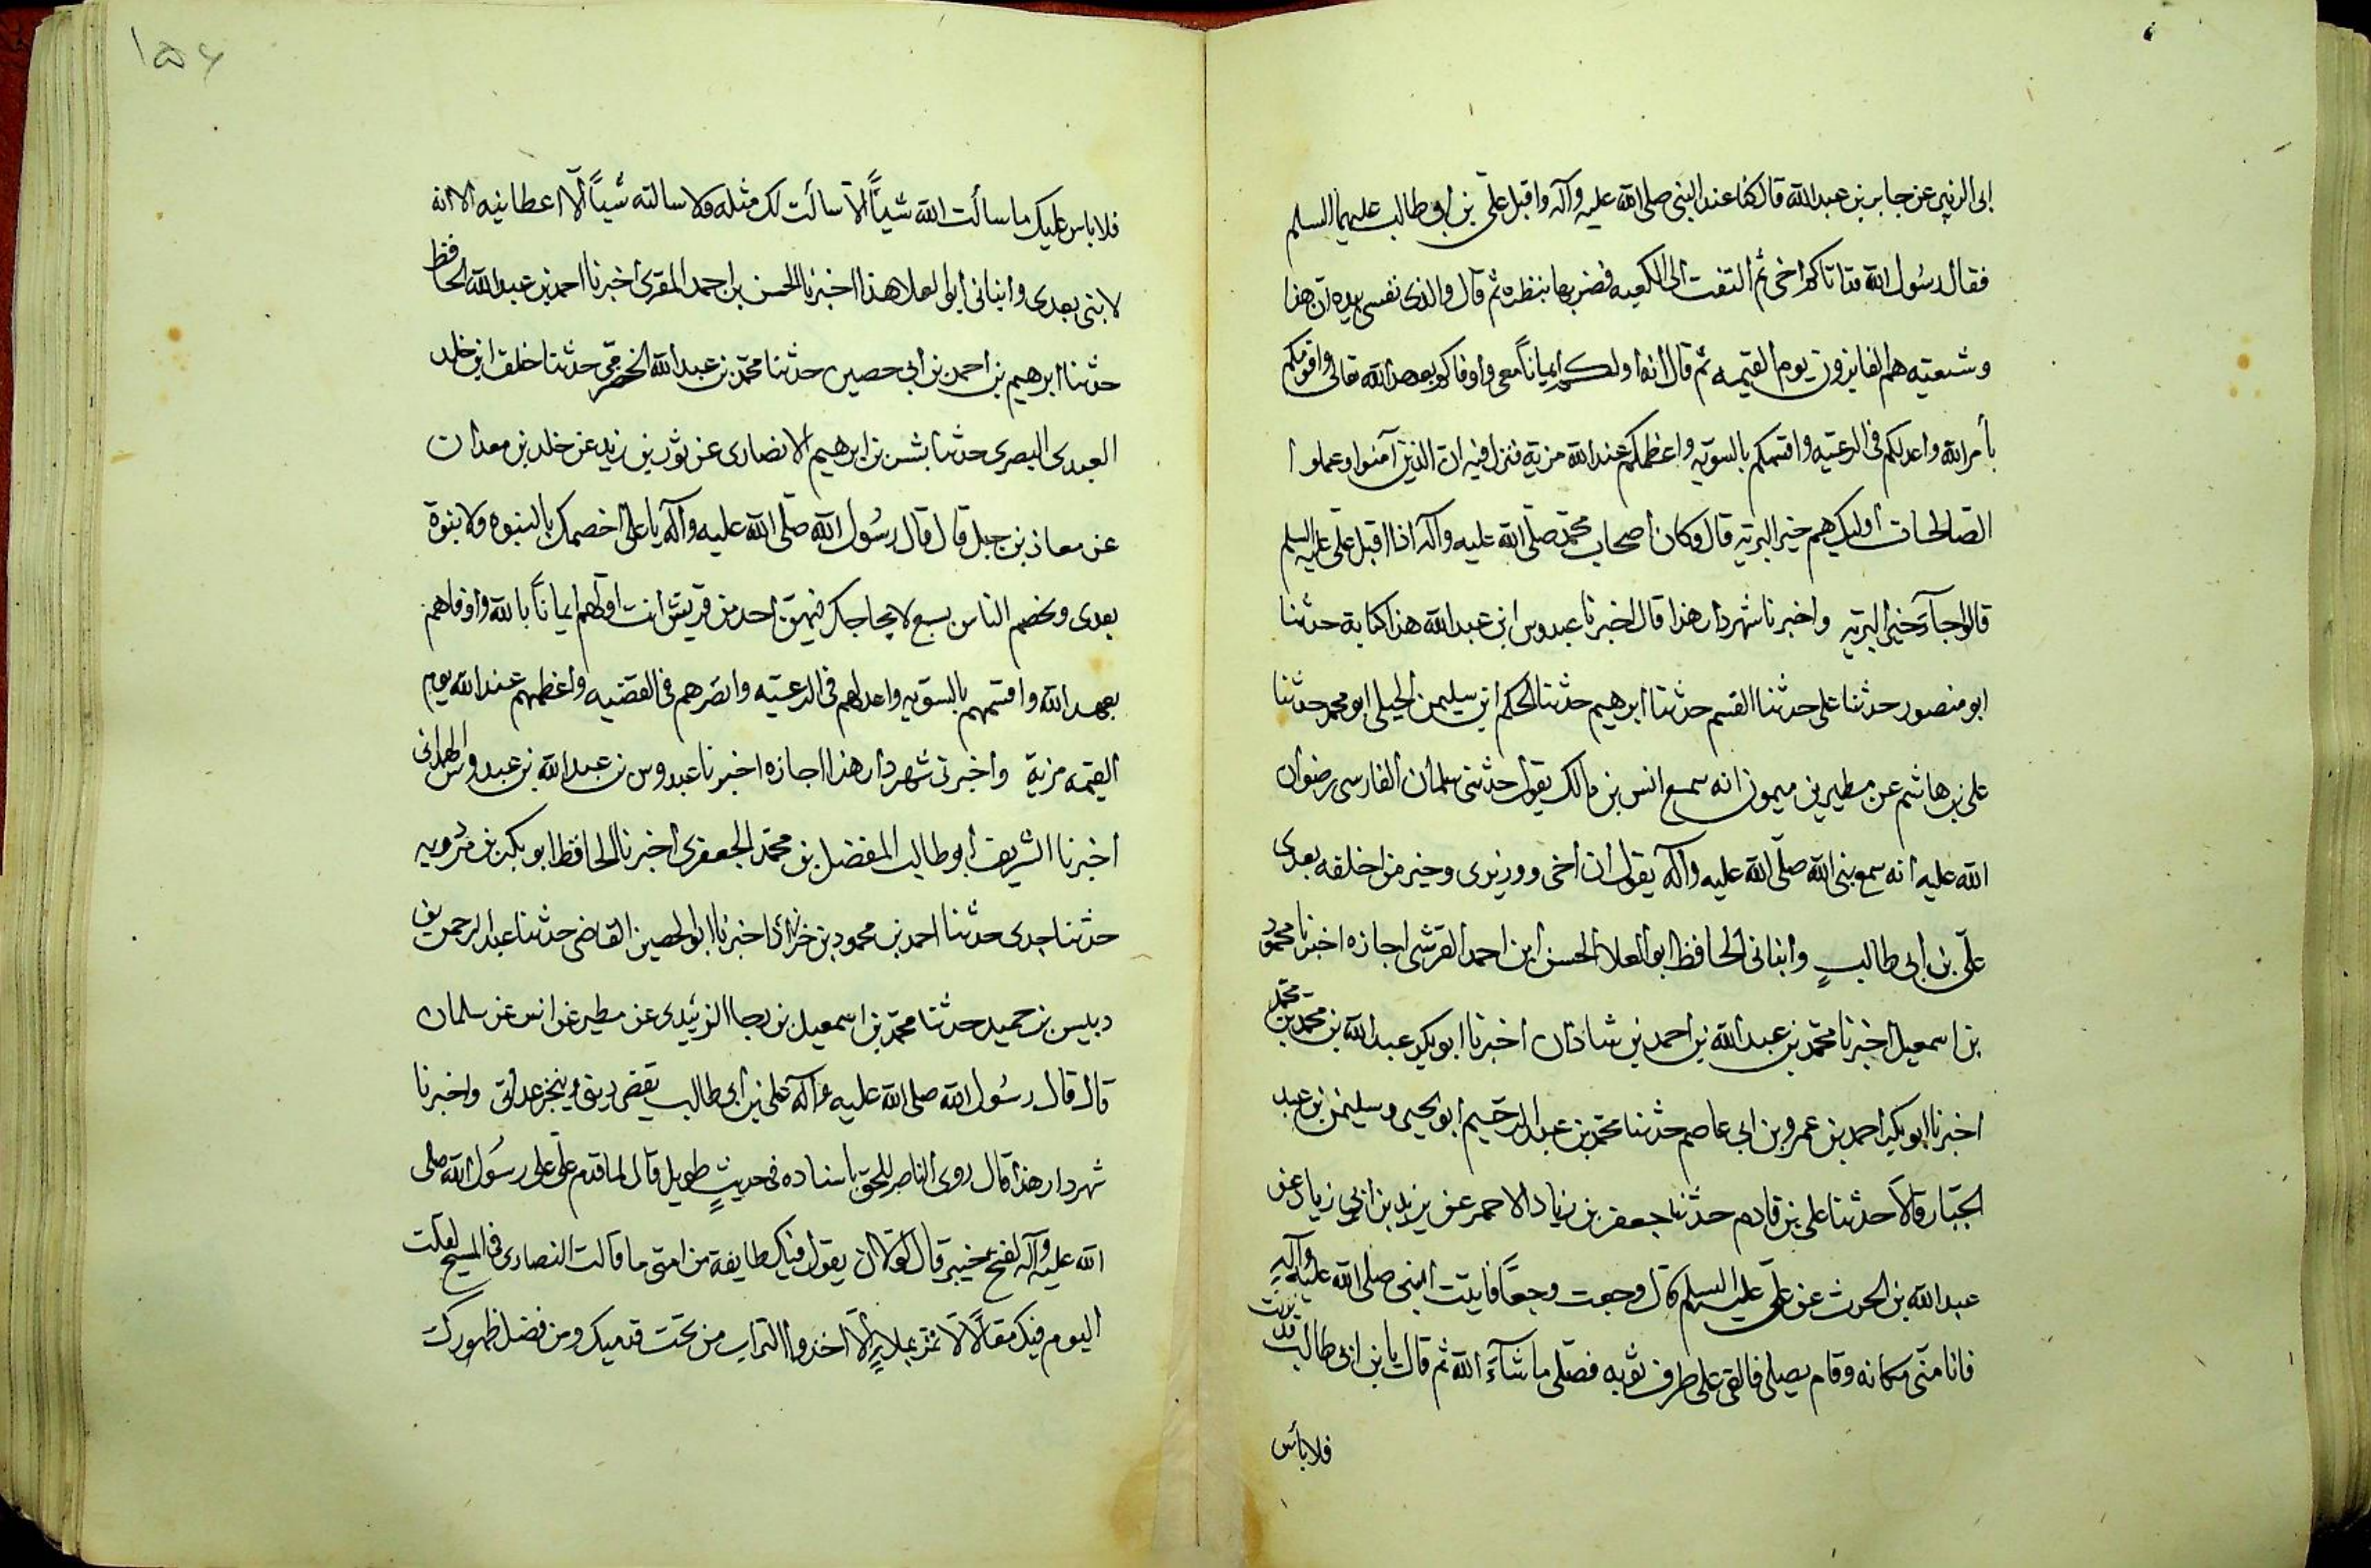 ابى الزبير عن جابر بن عبدالله قال كنا عند النبى صلى الله عليه وآله واقبل علىّ بن ابى طالب عليهما السلم
فقال رسُول الله قد اتاكم اخى ثم التفت الى الكعبه فضربها بنظره ثم قال والذى نفسى بيده ان هذا
وشيعته هم الفايزون يوم القيمه ثم قال انه اولكم ايماناً معى واوفاكم بعهد الله تعالى واقومكم
بأمر الله واعدلكم فى الرعيّه واقسمكم بالسويّه واعظمكم عند الله مزية فنزل فيه ان الذين آمنوا وعملوا
الصّالحات اولئك هم خير البريّه قال وكان أصحاب محمّد صلّى الله عليه وآله اذا اقبل علّى عليه السلم
قالوا جآء خير البريّه واخبرنا شهردار هذا قال اخبرنا عبدوس ابن عبدالله هذا كتابة حدثنا
ابو منصور حدثنا على حدثنا القسم حدثنا ابرهيم حدثنا الحكم ابن سليمن الجبلى ابو محمد حدثنا
على بن هاشم عن مطير بن ميمون انه سمع انس بن مالك يقول حدثنى سلمان الفارسى رضوان
الله عليه انه سمع نبى الله صلّى الله عليه وآله يقول ان اخى ووزيرى وخير من اخلفه بعدى
علّى بن ابى طالبٍ وانبانى الحافظ ابو العلا الحسن ابن احمد القرشى اجازه اخبرنا محمود
بن اسمعيل اخبرنا محمّد بن عبدالله بن احمد بن شاذان اخبرنا ابو بكر عبدالله بن محمّد بن محمّد
اخبرنا ابو بكر احمد بن عمرو بن ابى عاصم حدثنا محمّد بن عبدالرحيم ابو يحيى وسليمن بن عبد
الجبّار قالا حدثنا على بن قادم حدثنا جعفر بن زياد الاحمر عن يزيد بن ابى زياد عن
عبدالله بن الحرث عن علّى عليه السلم قال وجعت وجعاً فاتيت النبى صلى الله عليه وآله
فانامنّى مكانه وقام يصلى فالقى على طرف ثوبه فصلّى ماشآء الله ثم قال يا بن ابى طالب قد برئت
فلا بأس
١٥٤
فلا باس عليك ما سالت الله شيئاً الّا سالت لك مثله ولا سالته شيئاً الّا اعطانيه الا انه
لا نبى بعدى وانبانى ابو العلا هذا اخبرنا الحسن بن احمد المقرى اخبرنا احمد بن عبدالله الحافظ
حدثنا ابرهيم بن احمد بن ابى حصين حدثنا محمّد بن عبدالله الحضرمّى حدثنا خلف ابن خلد
العبدى البصرى حدثنا بشر بن ابرهيم الانصارى عن ثور بن يزيد عن خلد بن معدان
عن معاذ بن جبل قال قال رسُول الله صلّى الله عليه وآله يا علىّ اخصمك بالنبوه ولا نبوة
بعدى وتخصم الناس بسبع لا يحاجك فيهنّ احد من قريش انت اولهم ايماناً بالله واوفاهم
بعهد الله واقسمهم بالسّويه واعدلهم فى الرعيّه وابصرهم فى القضيه واعظمهم عند الله يوم
القيمه مزية واخبرنى شهردار هذا اجازه اخبرنا عبدوس بن عبدالله بن عبدوس الهمدانى
اخبرنا الشريف ابو طالب المفضل بن محمّد الجعفرى اخبرنا الحافظ ابو بكر بن مردويه
حدثنا جدى حدثنا احمد بن محمود بن خرزاد اخبرنا ابو الحصين القاضى حدثنا عبدالرحمن بن
دبيس بن حميد حدثنا محمّد بن اسمعيل بن رجا الزبيدى عن مطير عن انس عن سلمان
قال قال رسُول الله صلى الله عليه وآله على بن ابى طالب يقضى دينى وينجز عداتى واخبرنا
شهردار هذا قال روى الناصر للحق باسناده فى حديثٍ طويل قال لما قدم علّى على رسُول الله صلى
الله عليه وآله لفتح خيبر قال لولا ان يقول فيك طايفة من امتى ما قالت النصارى فى المسيح لقلت
اليوم فيك مقالاً لا تمر بملاءٍ الّا اخذوا التراب من تحت قدميك ومن فضل طهورك